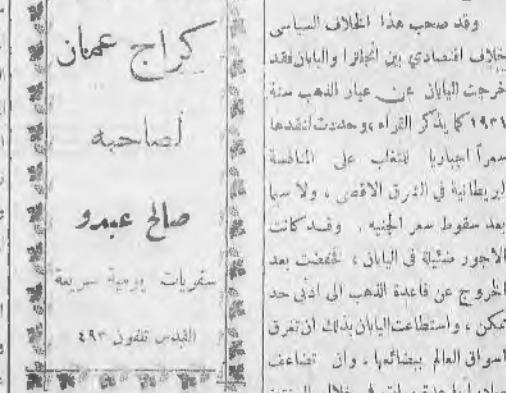 وقد صحب هذا الخلاف السياسي
خلاف اقتصادي بين انجلترا واليابان فقد
خرجت اليابان عن عيار الذهب سنة
١٩٣١ كما يذكر القراء ، وحددت لنقدها
سعراً اجبارياً للتغلب على المنافسة
البريطانية في الشرق الاقصى ، ولا سيما
بعد سقوط سعر الجنيه . وقد كانت
الاجور ضئيلة في اليابان ، فخفضت بعد
الخروج عن قاعدة الذهب الى ادنى حد
ممكن ، واستطاعت اليابان بذلك ان تغرق
اسواق العالم ببضائعها ، وان تضاعف
كراج عمان
لصاحبه
صالح عبدو
سفريات يومية سريعة
القدس تلفون ٤٩٣